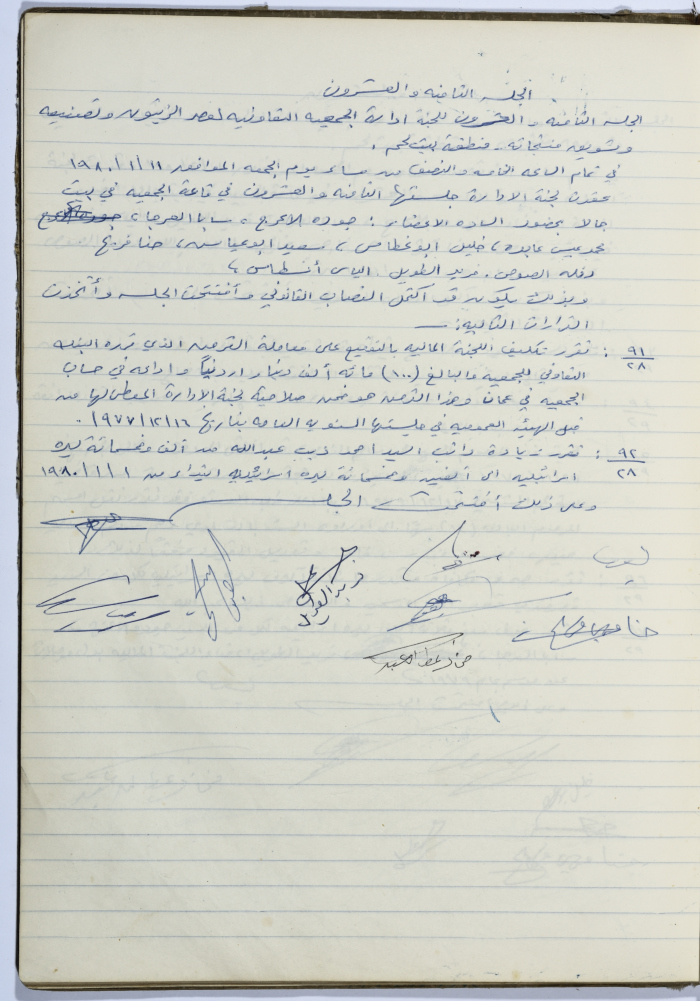 الجلسه الثامنه والعشرون
الجلسه الثامنه والعشرون للجنة ادارة الجمعيه التعاونيه لعصر الزيتون وتصنيعه
وتسويق منتجاته - منطقة بيت لحم .
في تمام الساعه الخامسه والنصف من مساء يوم الجمعه الموافق ١١/١/١٩٨٠
عقدت لجنة الادارة جلستها الثامنه والعشرون في قاعة الجمعيه في بيت
جالا بحضور الساده الاعضاء : جوده الاعرج ، سابا العرجا ،
خليل ابو غطاس ، سعيد ابو عياش ، حنا فريج
فريد الطويل . الياس أنسطاس ،
وبذلك يكون قد اكتمل النصاب القانوني وأفتتحت الجلسه وأتخذت
القرارات التاليه :
٩١/٢٨ : تقرر تكليف اللجنة الماليه بالتوقيع على معاملة القرض الذي قرره البنك
التعاوني للجمعيه والبالغ (١٠٠) مائه ألف دينار اردنياً وايداعه في حساب
الجمعيه في عمان وهذا القرض هو ضمن صلاحية لجنة الادارة المعطى لها من
قبل الهيئه العموميه في جلستها السنويه العامه بتاريخ ١٦/١٢/١٩٧٧ .
٩٢/٢٨ : تقرر زيادة راتب السيد احمد ذيب عبدالله من ألف وخمسمائة ليره
اسرائيليه الى ألفين وخمسمائة ليره اسرائيليه ابتداء من ١/١/١٩٨٠
وعلى ذلك أختتمت الجلسه